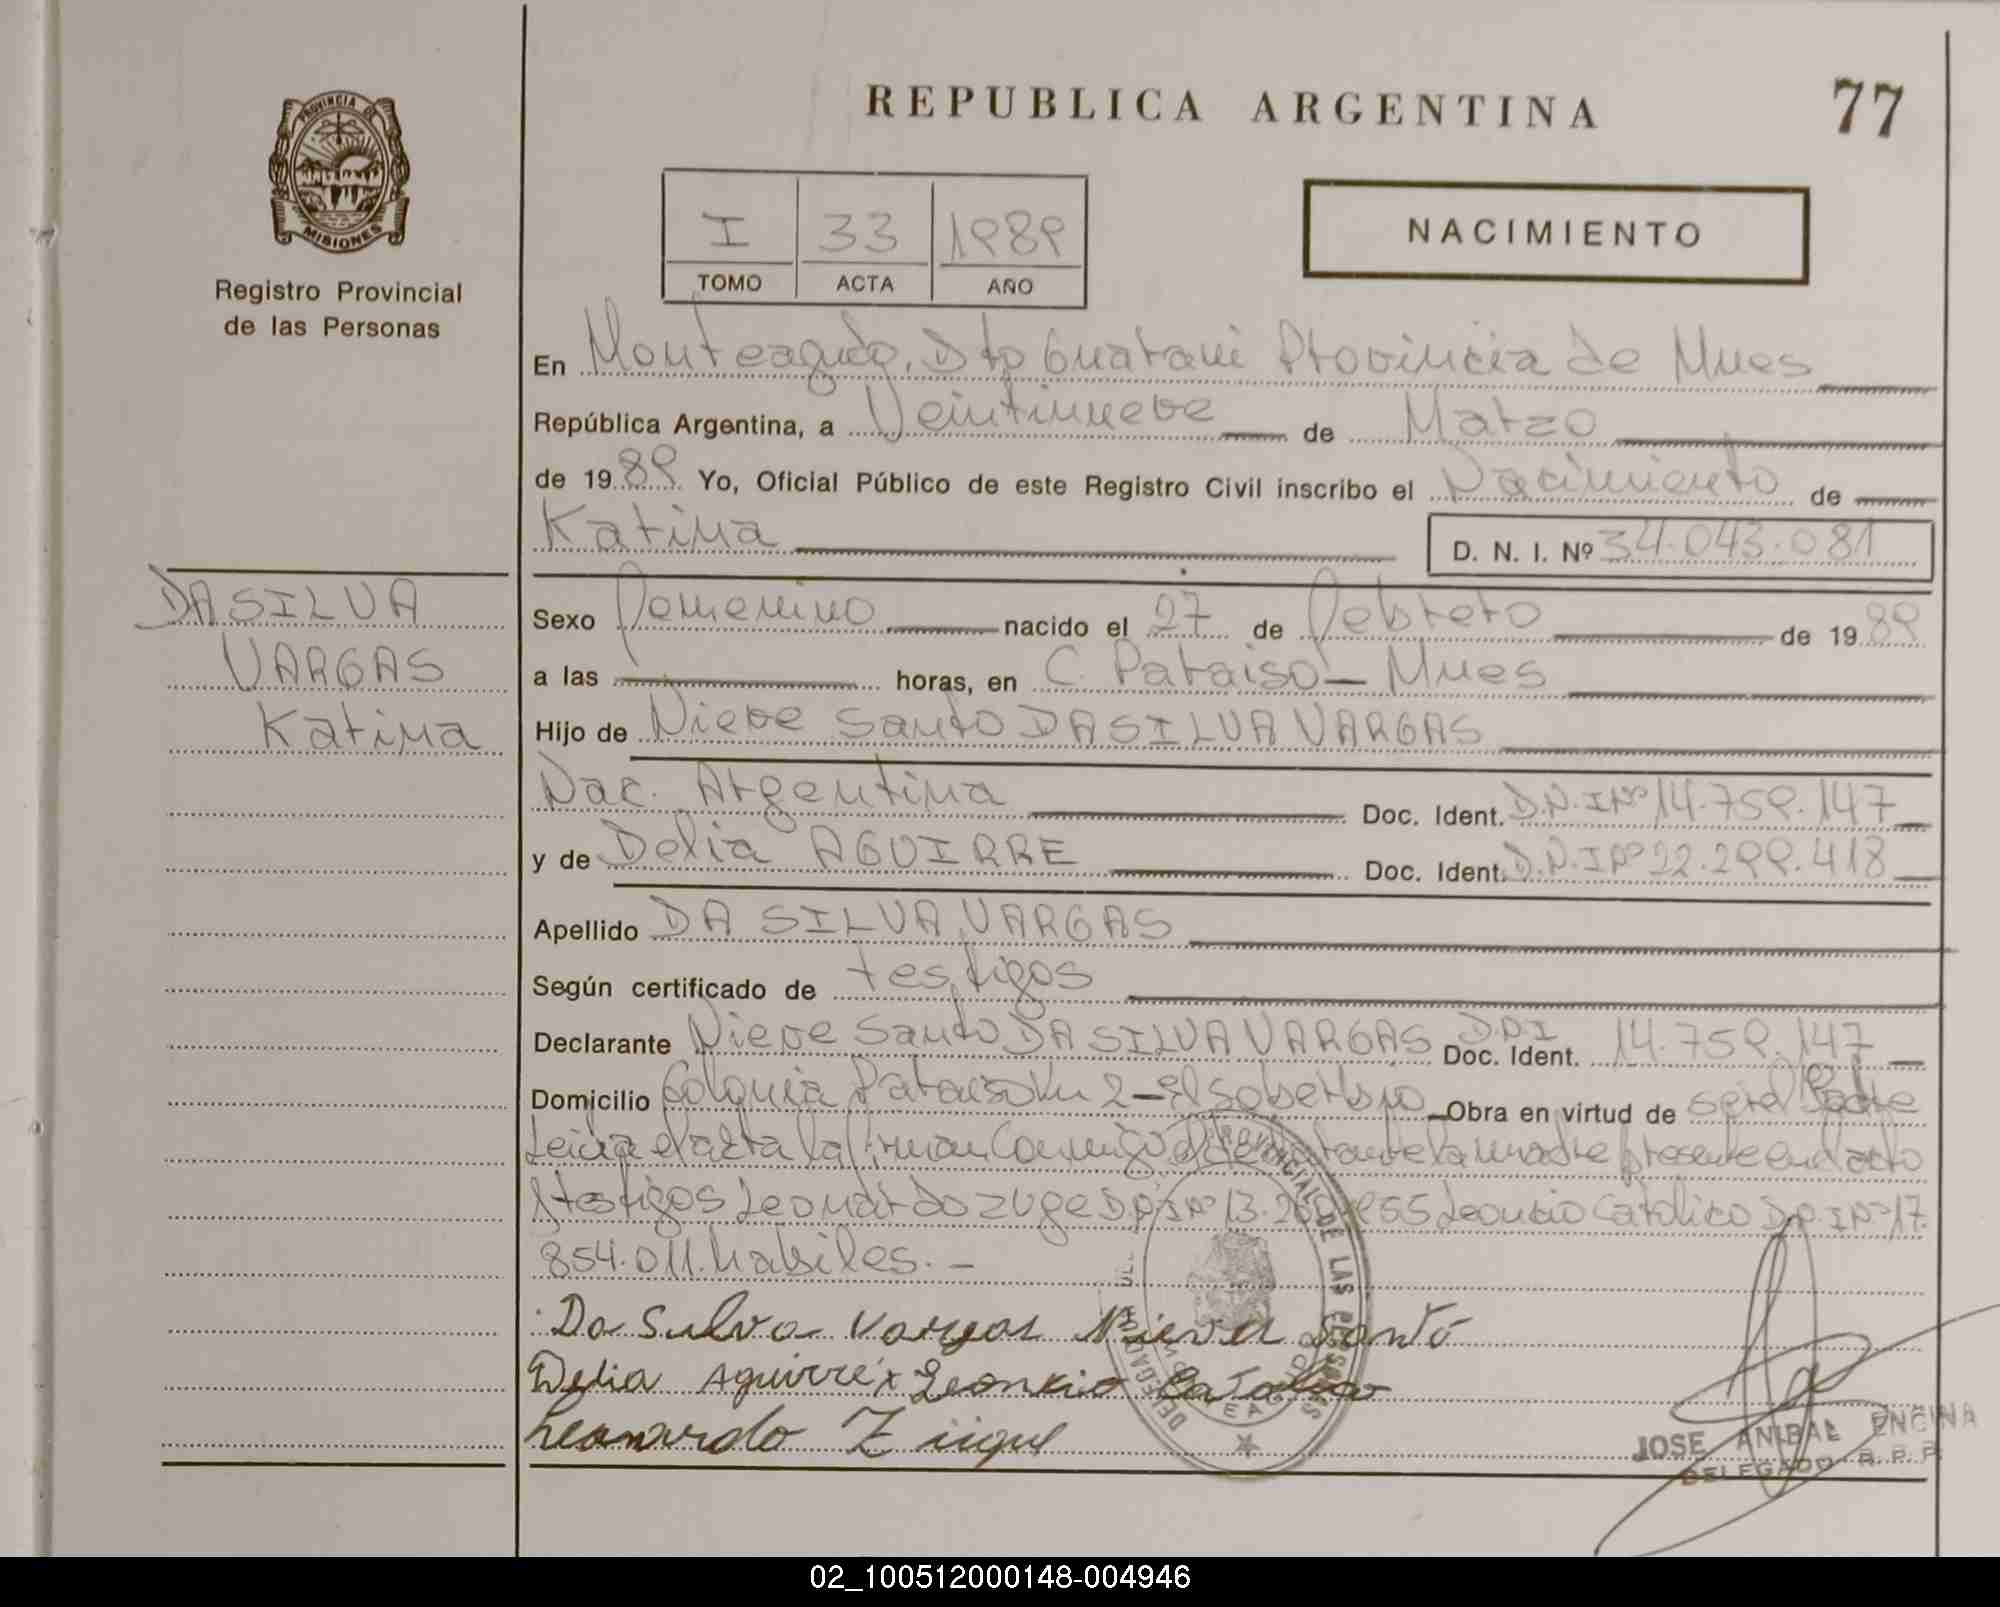 REPUBLICA ARGENTINA
77
PROVINCIA DE
MISIONES
Registro Provincial
de las Personas
I 33 1989
TOMO ACTA AÑO
NACIMIENTO
En Monteagudo, Dto Guarani Provincia de Mnes
República Argentina, a Veintinueve de Marzo
de 1989 Yo, Oficial Público de este Registro Civil inscribo el Nacimiento de
Katina D. N. I. Nº 34.043.081
DA SILVA
VARGAS
Katina
Sexo Femenino nacido el 27 de Febrero de 1989
a las horas, en C. Paraiso - Mnes
Hijo de Nieve Santo DA SILVA VARGAS
Nac. Argentina Doc. Ident. D.N.I Nº 14.759.147
y de Delia AGUIRRE Doc. Ident. D.N.I Nº 22.299.418
Apellido DA SILVA VARGAS
Según certificado de testigos
Declarante Nieve Santo DA SILVA VARGAS Doc. Ident. D.N.I 14.759.147
Domicilio Colonia Paraiso Km 2 - El Soberbio Obra en virtud de ser el Padre
Leida el acta la firman conmigo el declarante la madre presente en el acto
testigos Leonardo Zuge D.N.I Nº 13. Leoncio Catolico D.N.I Nº 17.
854.011. habiles. -
Da Silva Vargas Nieve Santo
Delia Aguirre x Leoncio Catolico
Leonardo Züge
JOSE ANIBAL ENCINA
DELEGADO R. P. P.
02_100512000148-004946